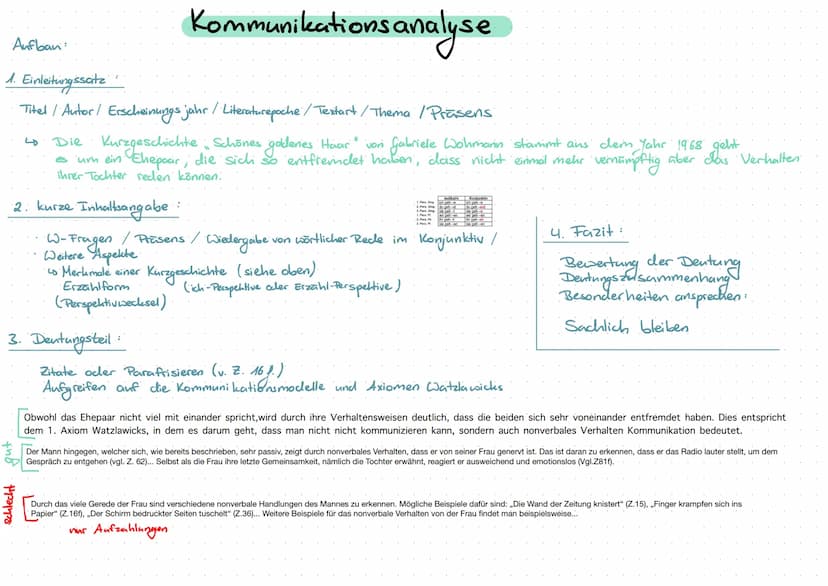 Kommunikationsanalyse
Aufbau:
1. Einleitungssatz:
Titel / Autor / Erscheinungsjahr / Literaturepoche / Textart / Thema / Präsens
↳ Die Kurzgeschichte „Schönes goldenes Haar" von Gabriele Wohmann stammt aus dem Jahr 1968 geht
es um ein Ehepaar, die sich so entfremdet haben, dass nicht einmal mehr vernünftig über das Verhalten
ihrer Tochter reden können.
2. kurze Inhaltsangabe:
· W-Fragen / Präsens / Wiedergabe von wörtlicher Rede im Konjunktiv /
· Weitere Aspekte
↳ Merkmale einer Kurzgeschichte (siehe oben)
Erzählform (ich-Perspektive oder Erzähl-Perspektive)
(Perspektivwechsel)
4. Fazit:
Bewertung der Deutung
Deutungszusammenhang
Besonderheiten ansprechen:
Sachlich bleiben
3. Deutungsteil:
Zitate oder Parafrisieren (v. Z. 16 f.)
Aufgreifen auf die Kommunikationsmodelle und Axiomen Watzlawicks
Obwohl das Ehepaar nicht viel mit einander spricht,wird durch ihre Verhaltensweisen deutlich, dass die beiden sich sehr voneinander entfremdet haben. Dies entspricht
dem 1. Axiom Watzlawicks, in dem es darum geht, dass man nicht nicht kommunizieren kann, sondern auch nonverbales Verhalten Kommunikation bedeutet.
gut
Der Mann hingegen, welcher sich, wie bereits beschrieben, sehr passiv, zeigt durch nonverbales Verhalten, dass er von seiner Frau genervt ist. Das ist daran zu erkennen, dass er das Radio lauter stellt, um dem
Gespräch zu entgehen (vgl. Z. 62)... Selbst als die Frau ihre letzte Gemeinsamkeit, nämlich die Tochter erwähnt, reagiert er ausweichend und emotionslos (Vgl.Z81f).
schlecht
Durch das viele Gerede der Frau sind verschiedene nonverbale Handlungen des Mannes zu erkennen. Mögliche Beispiele dafür sind: „Die Wand der Zeitung knistert" (Z.15), „Finger krampfen sich ins
Papier" (Z.16f), „Der Schirm bedruckter Seiten tuschelt" (Z.36)... Weitere Beispiele für das nonverbale Verhalten von der Frau findet man beispielsweise...
nur Aufzählungen